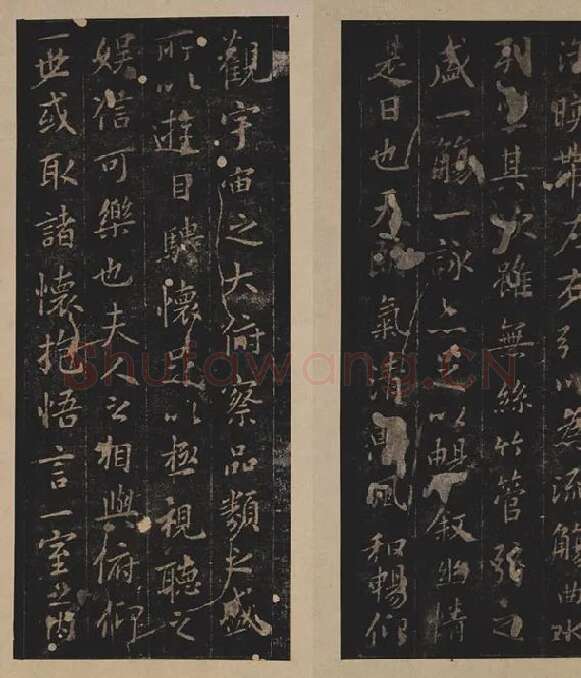 暎帶左右引以為流觴曲水
列坐其次雖無絲竹管弦之
盛一觴一詠亦足以暢敘幽情
是日也天朗氣清惠風和暢仰
觀宇宙之大俯察品類之盛
所以遊目騁懷足以極視聽之
娛信可樂也夫人之相與俯仰
一世或取諸懷抱悟言一室之內
Shufawang.CN